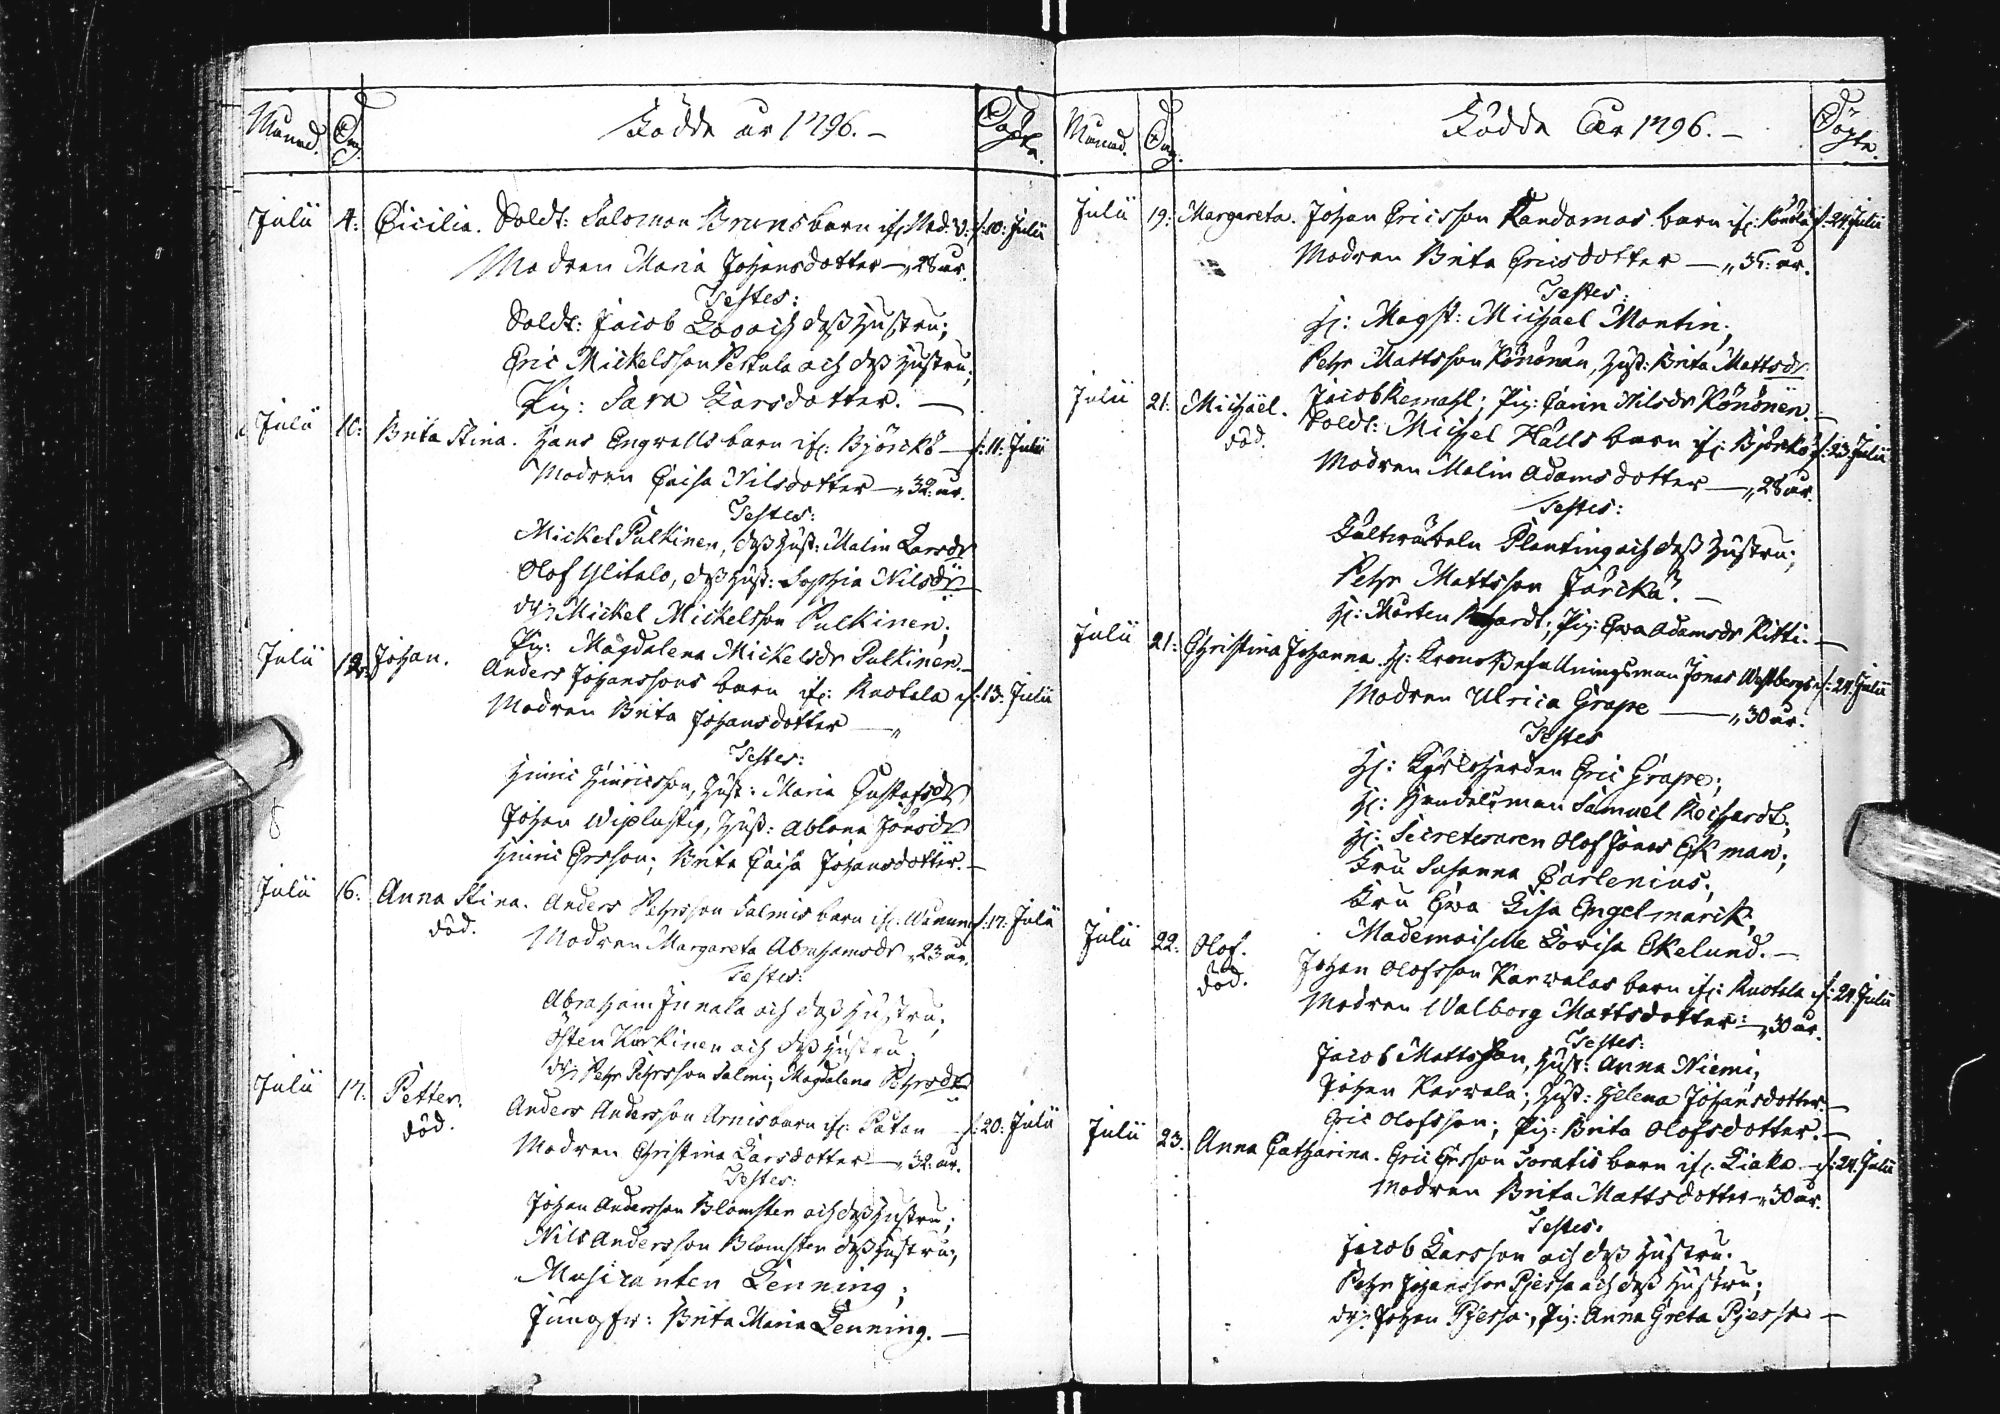 Månad. Dag. Födde år 1796.- Döpte.
Julii 4: Cicilia. Soldt: Salomon Bruns barn if: Ned: V: d: 10: Julii
Modren Maria Johansdotter —„ 28 år.
Testes:
Soldt: Jacob Loo och dess hustru;
Eric Mickelsson Pertula och dess hustru;
Pig: Sara Larsdotter. —
Julii 10: Brita Stina. Hans Engwalls barn if: Björckö — d: 11: Julii
Modren Caisa Nilsdotter —„ 32: år.
Testes:
Mickel Pulkinen, dess hust: Malin Larsdr
Olof Ylitalo, dess hust: Sophia Nilsdr
drg Mickel Mickelsson Pulkinen;
Pig: Magdalena Mickelsdr Pulkinen.—
Julii 12: Johan. Anders Johanssons barn if: Ruotala d: 13: Julii
Modren Brita Johansdotter —„
Testes:
Hinric Hinricsson, hust: Maria Gustafsdr
Johan Wiplustig, hust: Ablona Jönsdr
Hinric Ersson; Brita Caisa Johansdotter. —
Julii 16: Anna Stina. Anders Pehrsson Salmis barn if: d: 17: Julii
död. Modren Margareta Abrahamsdr „ 23 år.
Testes:
Abraham Junala och dess hustru;
Östen Kurkinen och dess hustru;
drg Pehr Pehrsson Salmi; Magdalena Pehrsdr
Julii 17: Petter. Anders Andersson Arnis barn if: Päkan — d: 20: Julii
död. Modren Christina Larsdotter —„ 32. år.
Testes:
Johan Andersson Blomster och dess hustru;
Nils Andersson Blomster dess hustru;
Musicanten Lenning;
Jungfr: Brita Maria Lenning. —
Månad. Dag. Födde År 1796. — Döpte.
Julii 19: Margareta. Johan Ericsson Kandomas barn if: d: 24. Julii
Modren Brita Ericsdotter —„ 35: år.
Testes:
H: Magst: Michael Montin;
Pehr Mattsson Könönän, hust: Brita Mattsdr
Jacob Kemahl; Pig: Carin Nilsdr Könönen. —
Julii 21: Michael. Soldt: Michel Hälls barn if: Björckö d: 23: Julii
död. Modren Malin Adamsdotter —„ 28 år.
Testes:
Fältwäbeln Planting och dess hustru;
Pehr Mattsson Jarcka. —
H: Mårten; Pig: Ewa Adamsdr Kitti. —
Julii 21: Christina Johanna. H: Krono Befallningsman Jonas Westbergs d: 24: Julii
Modren Ulrica Grape —„ 30 år.
Testes
H: Kyrkoherden Eric Grape;
H: Handelsman Samuel Reichardt;
H: Secreteraren Olof Jonas Ekman;
Fru Susanna Carlenius;
Fru Ewa Lisa Engelmarck;
Mademoiselle Lovisa Ekelund. —
Julii 22: Olof. Johan Olofsson Karwalas barn if: Ruotala d: 24. Julii
död. Modren Walborg Mattsdotter —„ 30 år.
Testes:
Jacob Mattsson, hust: Anna Niemi;
Johan Karwala; hust: Helena Johansdotter. —
Eric Olofsson; Pig: Brita Olofsdotter. —
Julii 23. Anna Catharina. Eric Ersson Toratis barn if: Liako d: 24. Julii
Modren Brita Mattsdotter „ 30 år.
Testes:
Jacob Larsson och dess hustru.
Pehr Johansson Pjessa och dess hustru;
drg: Johan Pjessa; Pig: Anna Greta Pjessa —